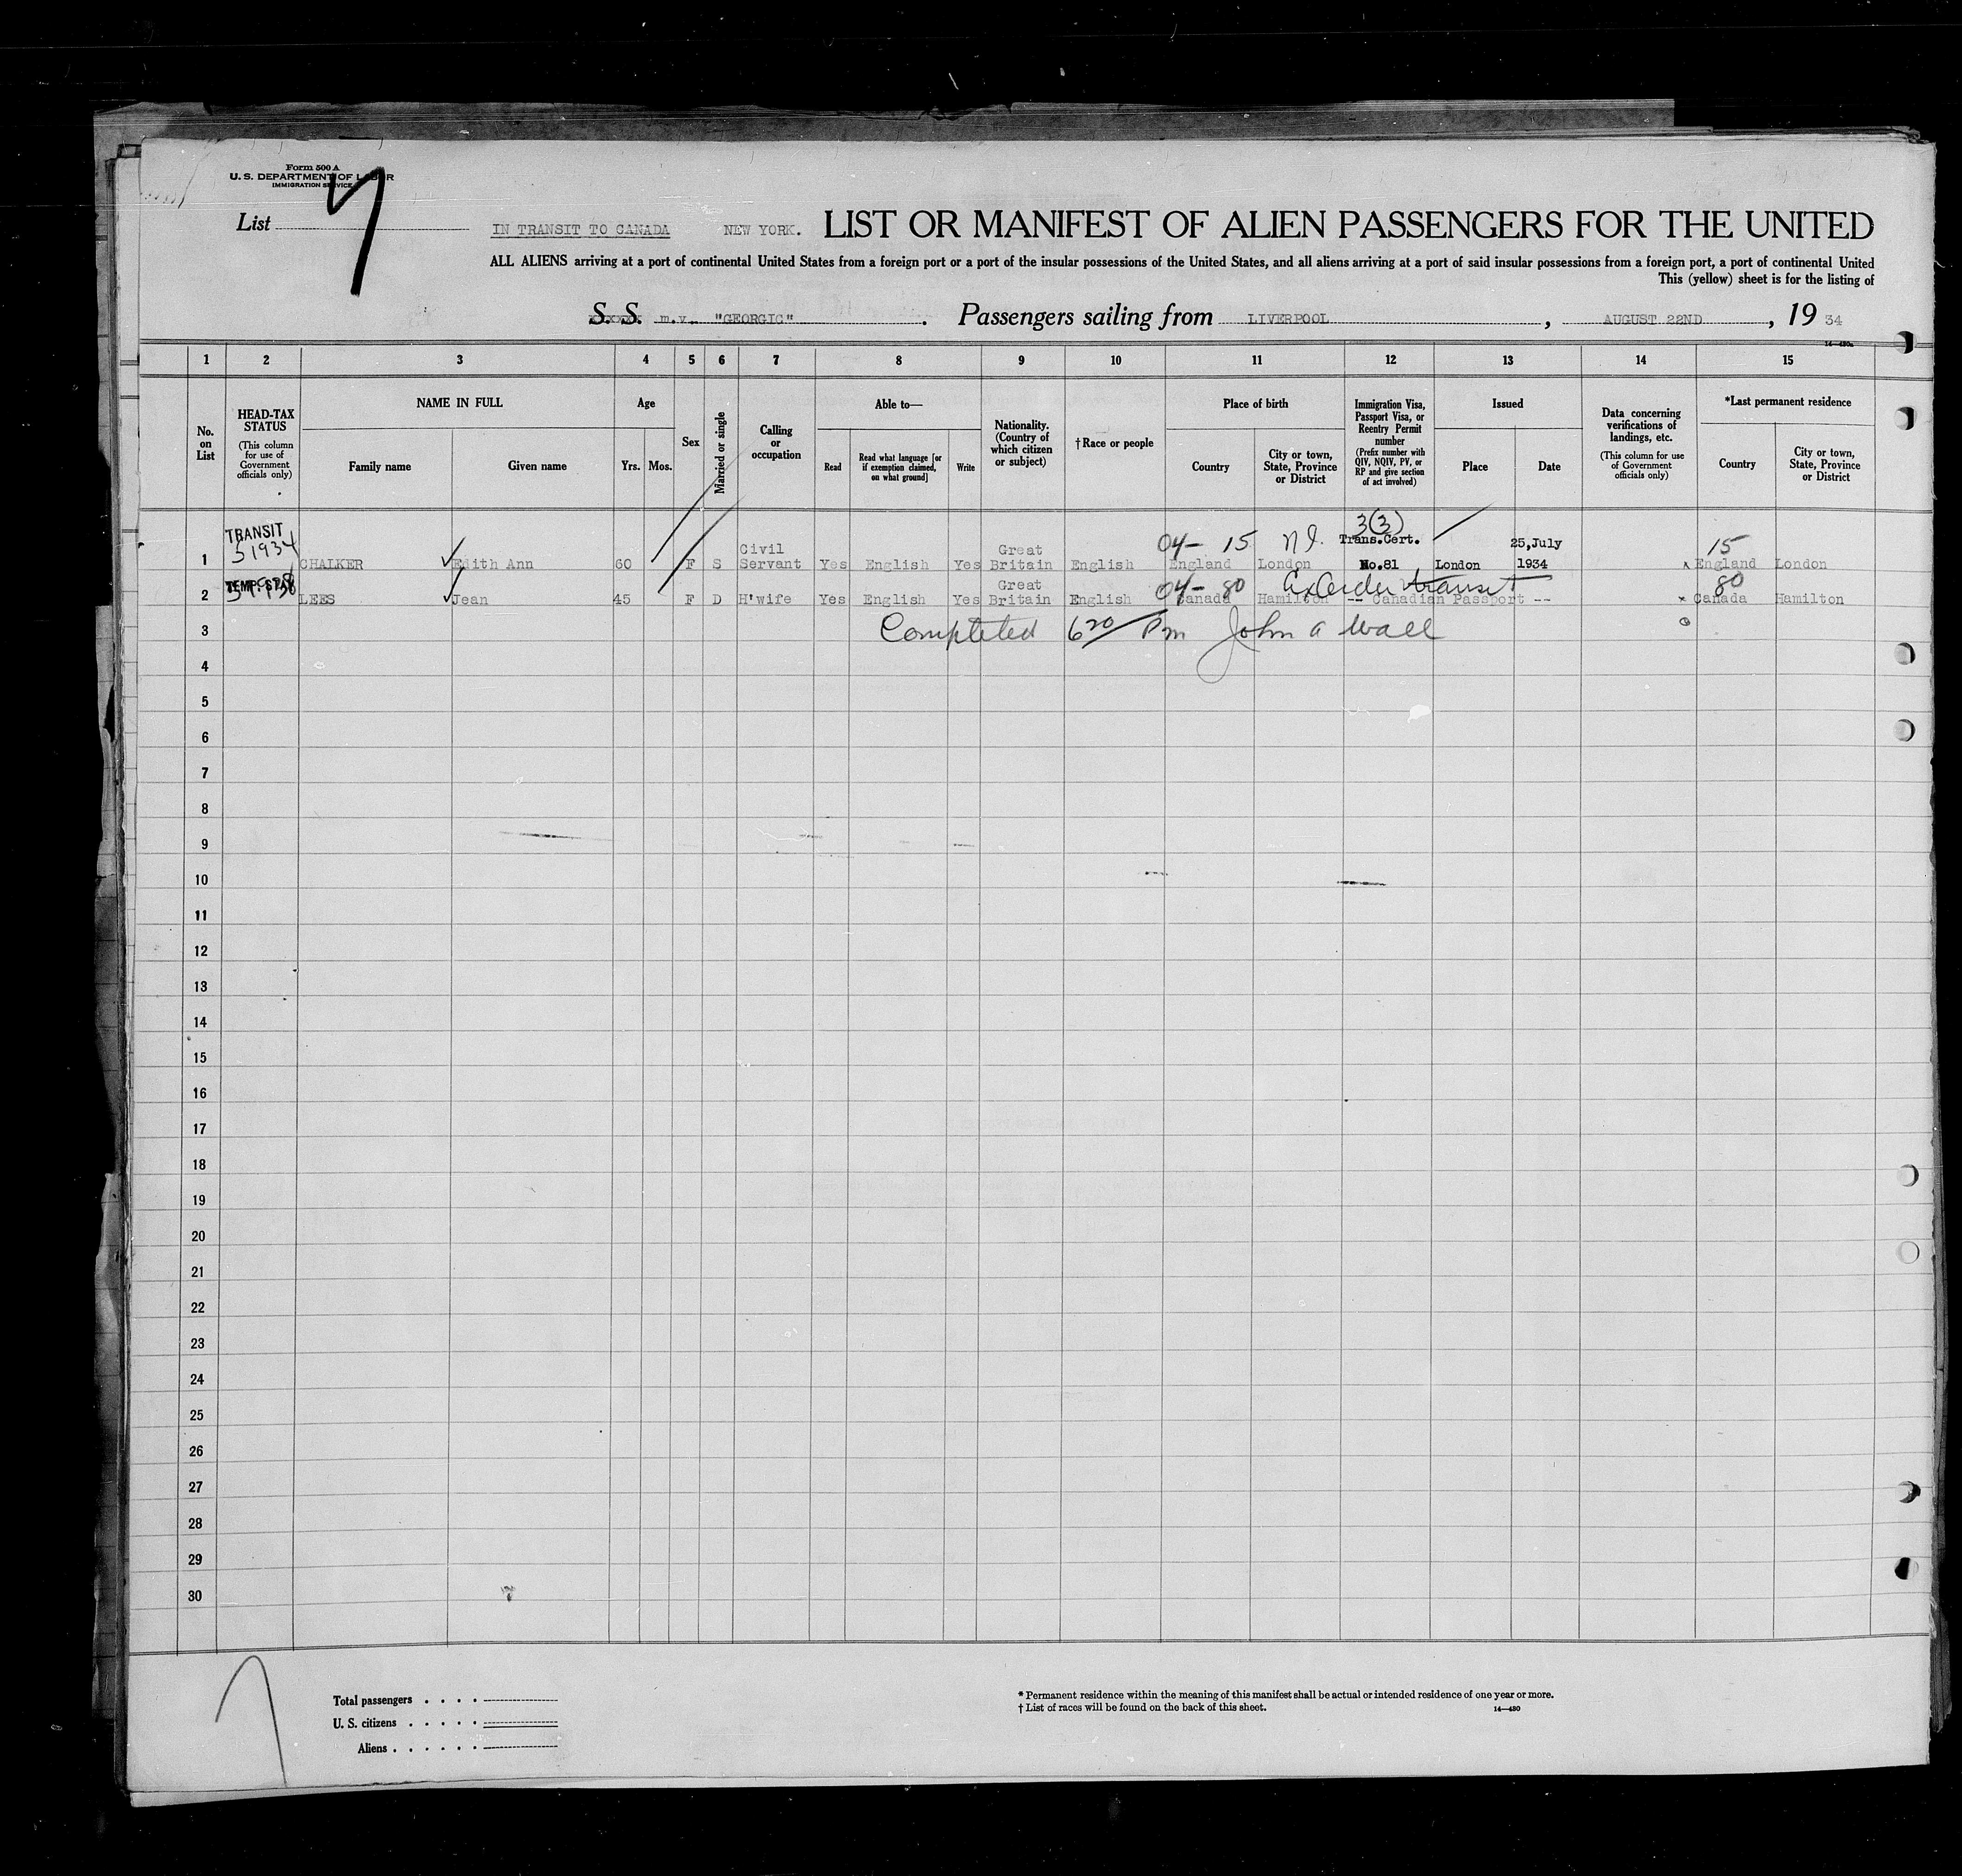 Form 500 A
U. S. DEPARTMENT OF LABOR
IMMIGRATION SERVICE
List 7
IN TRANSIT TO CANADA NEW YORK. LIST OR MANIFEST OF ALIEN PASSENGERS FOR THE UNITED
ALL ALIENS arriving at a port of continental United States from a foreign port or a port of the insular possessions of the United States, and all aliens arriving at a port of said insular possessions from a foreign port, a port of continental United
This (yellow) sheet is for the listing of
S. S. m.v. "GEORGIC". Passengers sailing from LIVERPOOL, AUGUST 22ND, 19 34
14—480a
1 2 3 4 5 6 7 8 9 10 11 12 13 14 15
No. on List
HEAD-TAX STATUS (This column for use of Government officials only)
NAME IN FULL
Family name Given name
Age
Yrs. Mos.
Sex
Married or single
Calling or occupation
Able to—
Read
Read what language [or if exemption claimed, on what ground]
Write
Nationality. (Country of which citizen or subject)
†Race or people
Place of birth
Country
City or town, State, Province or District
Immigration Visa, Passport Visa, or Reentry Permit number (Prefix number with QIV, NQIV, PV, or RP and give section of act involved)
Issued
Place Date
Data concerning verifications of landings, etc. (This column for use of Government officials only)
*Last permanent residence
Country
City or town, State, Province or District
TRANSIT 04- 15 3(3) 15
51934 Civil Great Trans.Cert. 25,July
1 CHALKER Edith Ann 60 F S Servant Yes English Yes Britain English England London No.81 London 1934 x England London
TEMP. STAY Great 04- 80 transit 80
2 LEES Jean 45 F D H'wife Yes English Yes Britain English Canada Hamilton -- Canadian Passport -- x Canada Hamilton
3 Completed 6 20 Pm John a Wall
4
5
6
7
8
9
10
11
12
13
14
15
16
17
18
19
20
21
22
23
24
25
26
27
28
29
30
7
Total passengers . . . .
U. S. citizens . . . . .
Aliens . . . . . .
* Permanent residence within the meaning of this manifest shall be actual or intended residence of one year or more.
† List of races will be found on the back of this sheet. 14—480